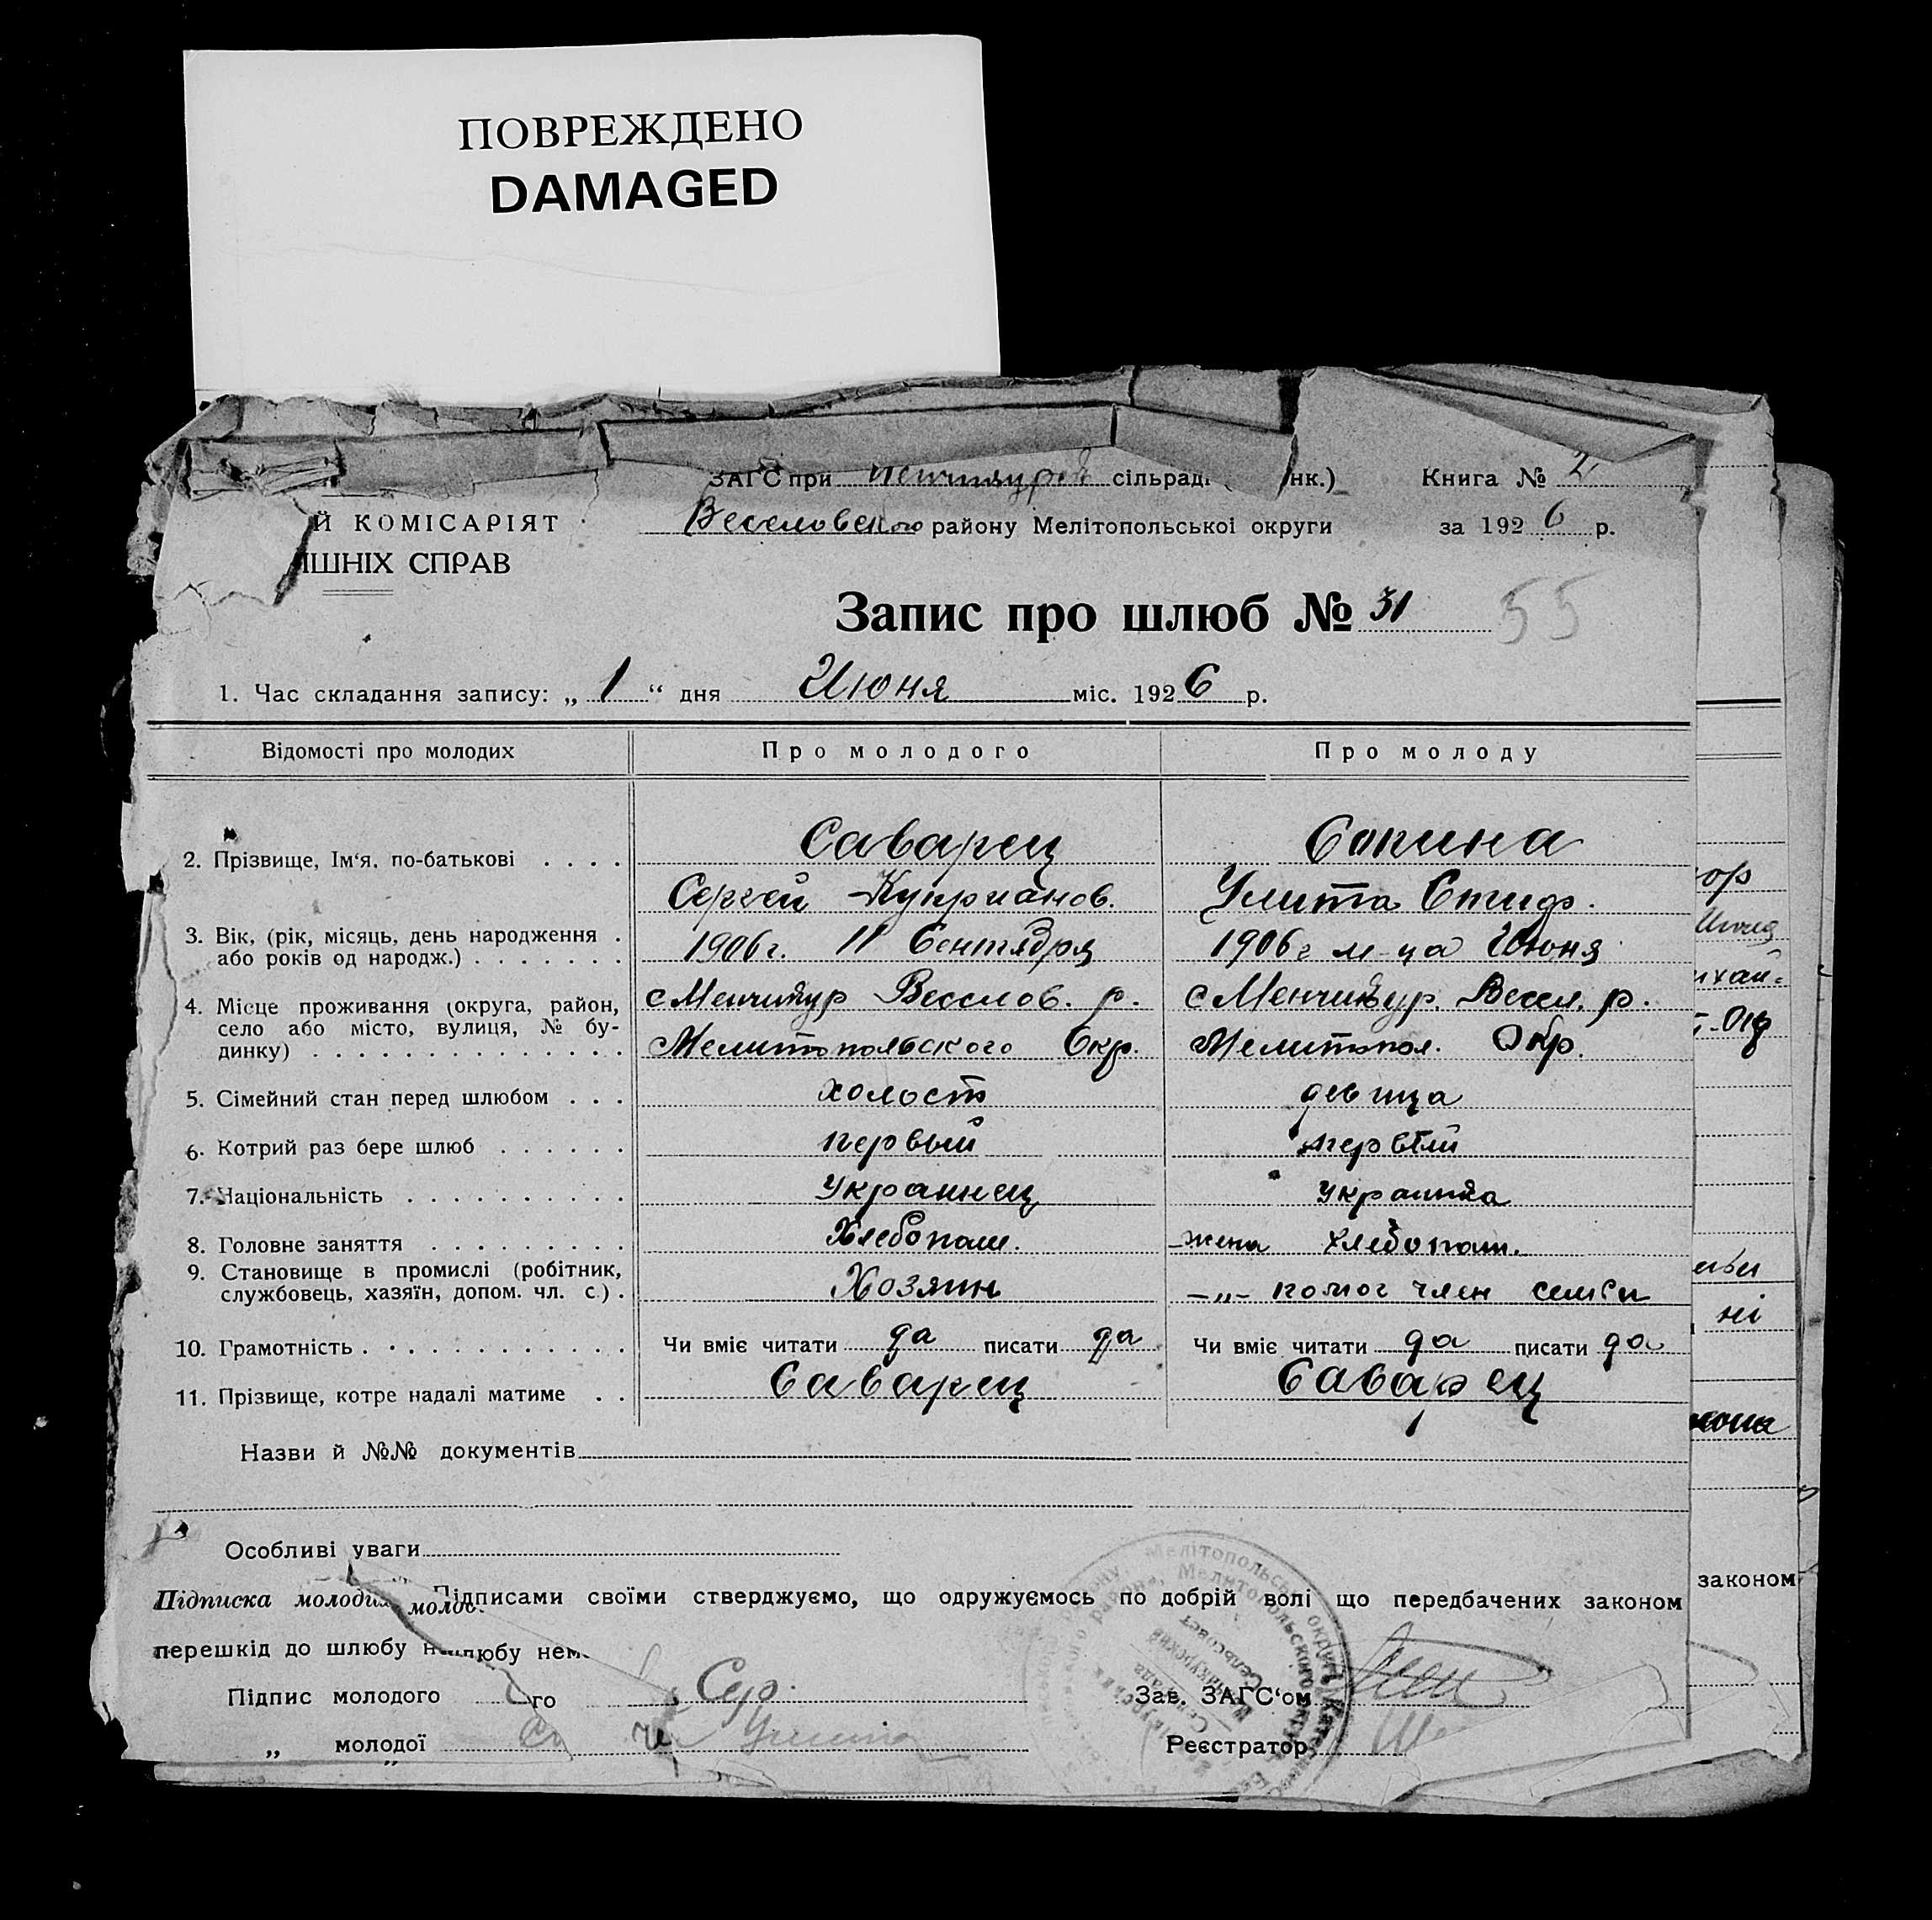 ПОВРЕЖДЕНО
DAMAGED
ЗАГС при сільраді нк.) Книга № 2
Веселовского району Мелітопольської округи за 1926 р.
Й КОМІСАРІЯТ
ІШНІХ СПРАВ
Запис про шлюб № 31 55
1. Час складання запису: „ 1 “ дня Июня міс. 1926 р.
Відомості про молодих Про молодого Про молоду
2. Прізвище, Ім‘я, по-батькові . . . . Саварец Сопина
Сергей Куприанов. Улита Стиф.
3. Вік, (рік, місяць, день народження . 1906 г. 11 Сентября 1906 г м-ца Июня
або років од народж.) . . . . . . .
4. Місце проживання (округа, район, с Менчикур Веселов. р. с Менчикур. Весел. р.
село або місто, вулиця, № бу-
динку) . . . . . . . . . . . . . . Мелитопольского Окр. Мелитопол. Окр.
5. Сімейний стан перед шлюбом . . . холост девица
6. Котрий раз бере шлюб . . . . . . первый первый
7. Національність . . . . . . . . . . Украинец Украинка
8. Головне заняття . . . . . . . . . Хлебопаш. жена хлебопаш.
9. Становище в промислі (робітник,
службовець, хазяїн, допом. чл. с.) . Хозяин –„– помог член семьи
10. Грамотність . . . . . . . . . . . . Чи вміє читати да писати да Чи вміє читати да писати да
11. Прізвище, котре надалі матиме . . Саварец Саварец
Назви й №№ документів
Особливі уваги
Підписка молодих молдо. Підписами своїми стверджуємо, що одружуємось по добрій волі що передбачених законом
законом
перешкід до шлюбу н шлюбу нем
Підпис молодого го Сер. Зав. ЗАГС‘ом
„ молодої Улита Реєстратор
ор
ихай.
ні